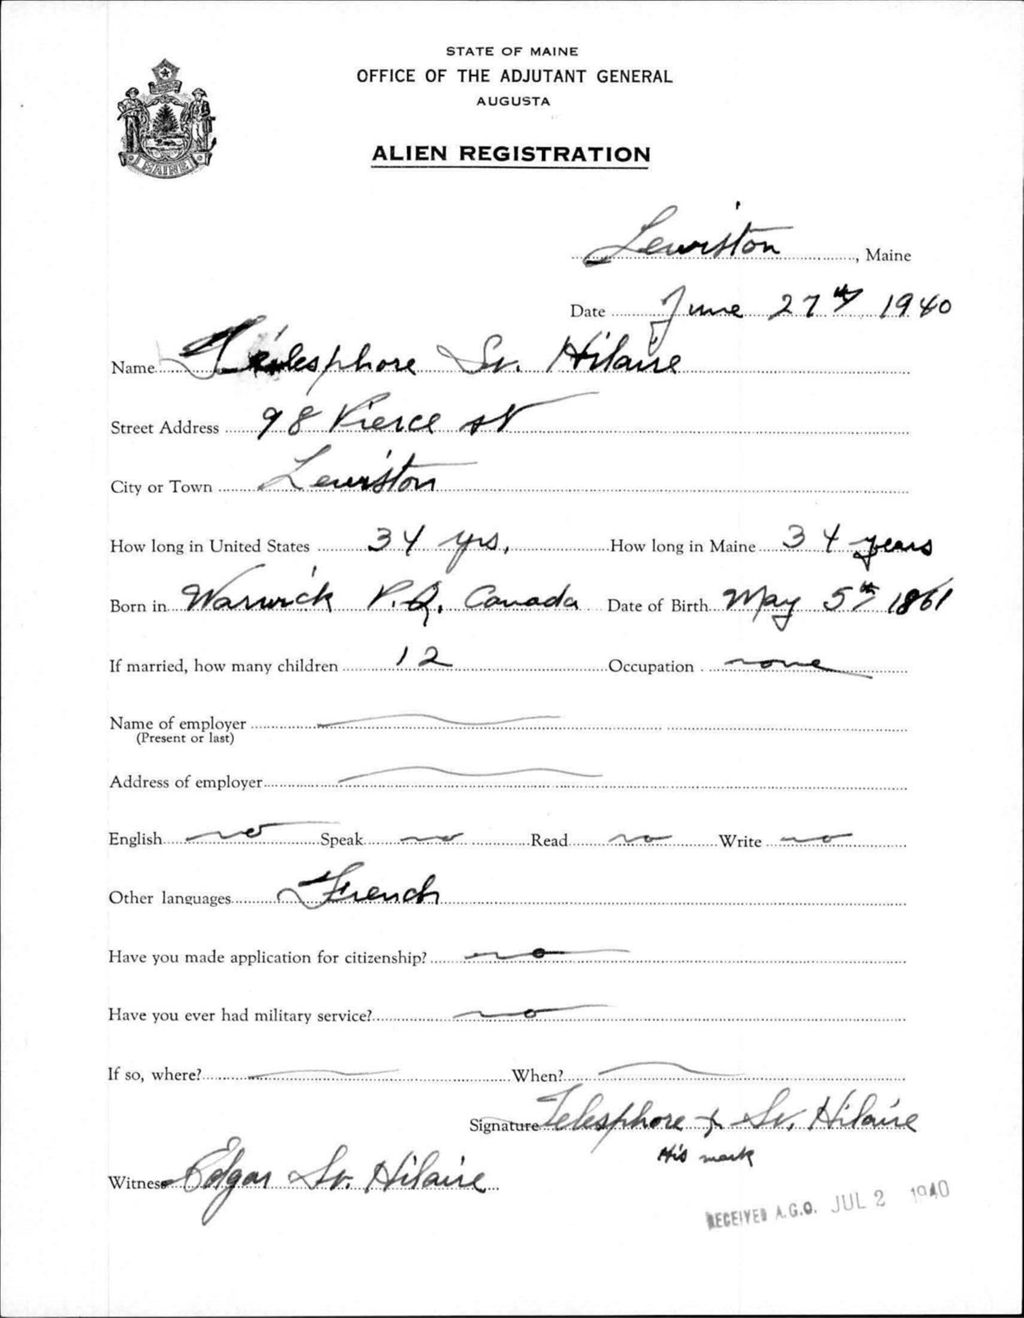 STATE OF MAINE
OFFICE OF THE ADJUTANT GENERAL
AUGUSTA
ALIEN REGISTRATION
MAINE
Lewiston, Maine
Date June 27th 1940
Name Télesphore St. Hilaire
Street Address 98 Pierce st
City or Town Lewiston
How long in United States 34 yrs. How long in Maine 34 years
Born in Warwick P.Q. Canada Date of Birth May 5th 1861
If married, how many children 12 Occupation none
Name of employer
(Present or last)
Address of employer
English no Speak no Read no Write no
Other languages French
Have you made application for citizenship? no
Have you ever had military service? no
If so, where? When?
Signature Telesphore x St. Hilaire
His mark
Witness Edgar St. Hilaire
RECEIVED A.G.O. JUL 2 1940